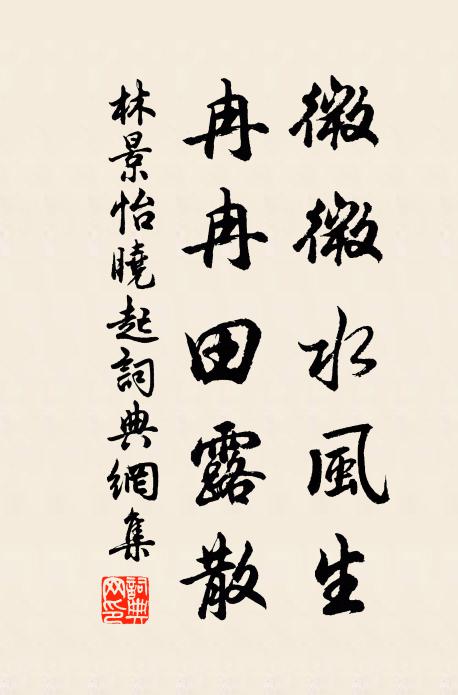 微微水風生
冉冉田露散
林景怡曉起詞典網集
詞典網印